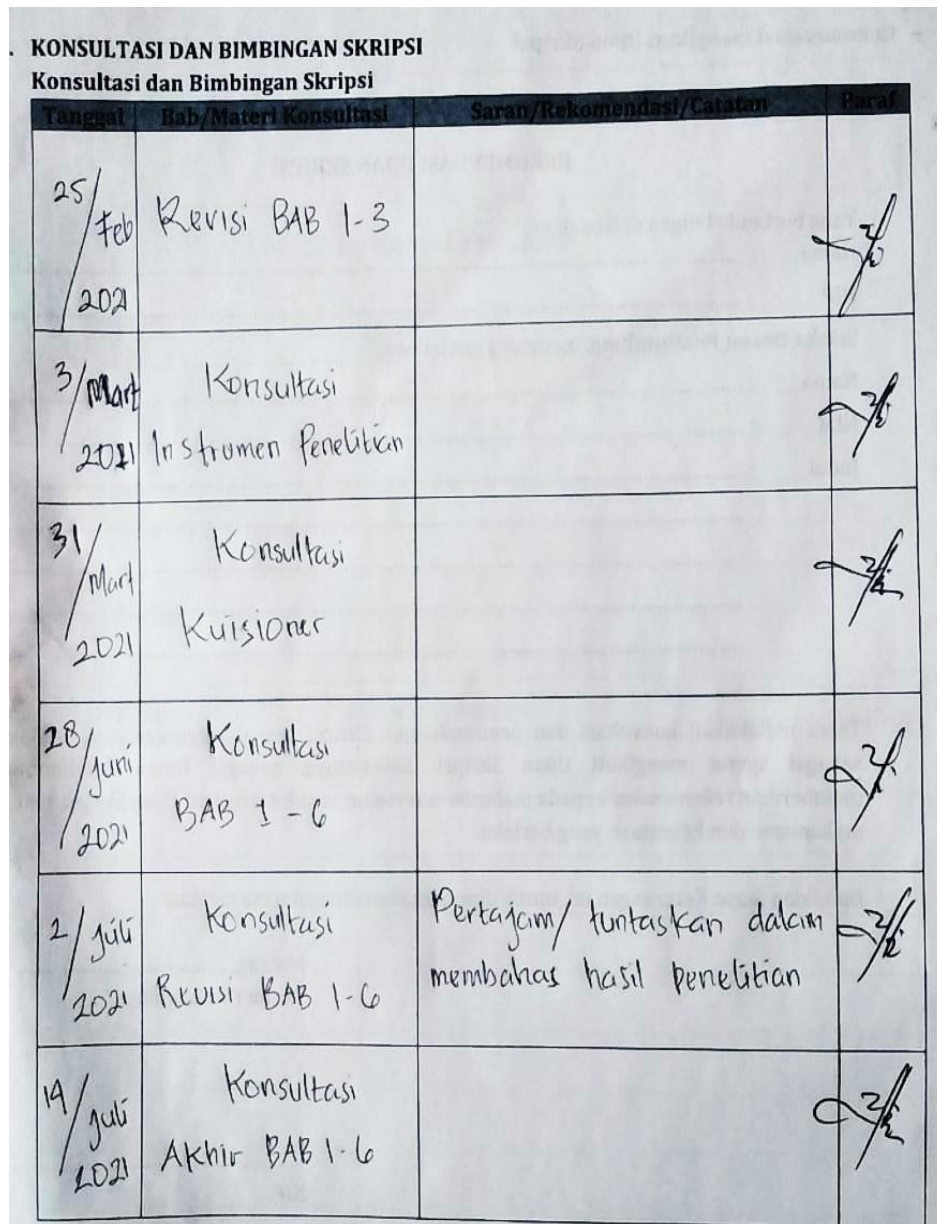 KONSULTASI DAN BIMBINGAN SKRIPSI
Konsultasi dan Bimbingan Skripsi
Tanggal Bab/Materi Konsultasi Saran/Rekomendasi/Catatan Paraf
25/Feb/2021 Revisi BAB 1-3
3/Mart/2021 Konsultasi
Instrumen Penelitian
31/Mart/2021 Konsultasi
Kuisioner
28/Juni/2021 Konsultasi
BAB 1-6
2/Juli/2021 Konsultasi
Revisi BAB 1-6
Pertajam/tuntaskan dalam
membahas hasil penelitian
19/Juli/2021 Konsultasi
Akhir BAB 1-6